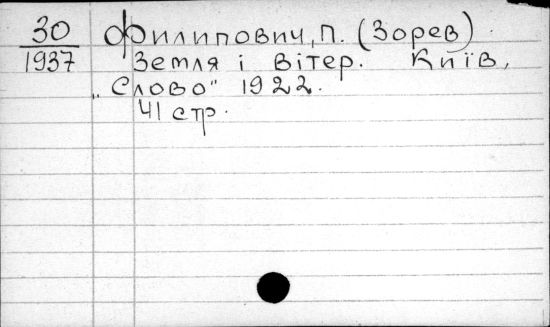 30 Филипович, П. (Зорев)
1937 Земля і вітер. Київ,
„Слово" 1922.
41 стр.